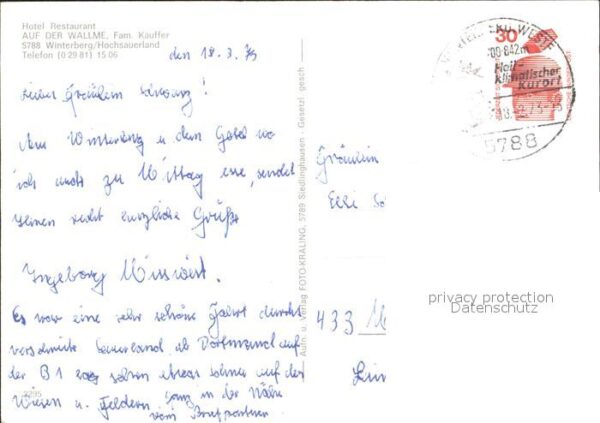 Hotel Restaurant
AUF DER WALLME, Fam. Kauffer
5788 Winterberg/Hochsauerland
Telefon (0 29 81) 15 06
den 18.3.73
Liebes Fräulein
Aus Winterberg u dem Hotel wo
ich auch zu Mittag esse, sendet
Ihnen recht herzliche Grüße
Ingeborg
Es war eine sehr schöne Fahrt durchs
verschneite Sauerland. ab Dortmund auf
der B1 sahen etwas Schnee auf den
Wiesen u. Feldern ganz in der Nähe
vom Briefpartner
2295
Aufn. u. Verlag FOTO-KRALING, 5789 Siedlinghausen - Gesetzl. gesch
Fräulein
Elli
433
30
00-842m
Heil-
klimatischer
Kurort
5788
privacy protection
Datenschutz